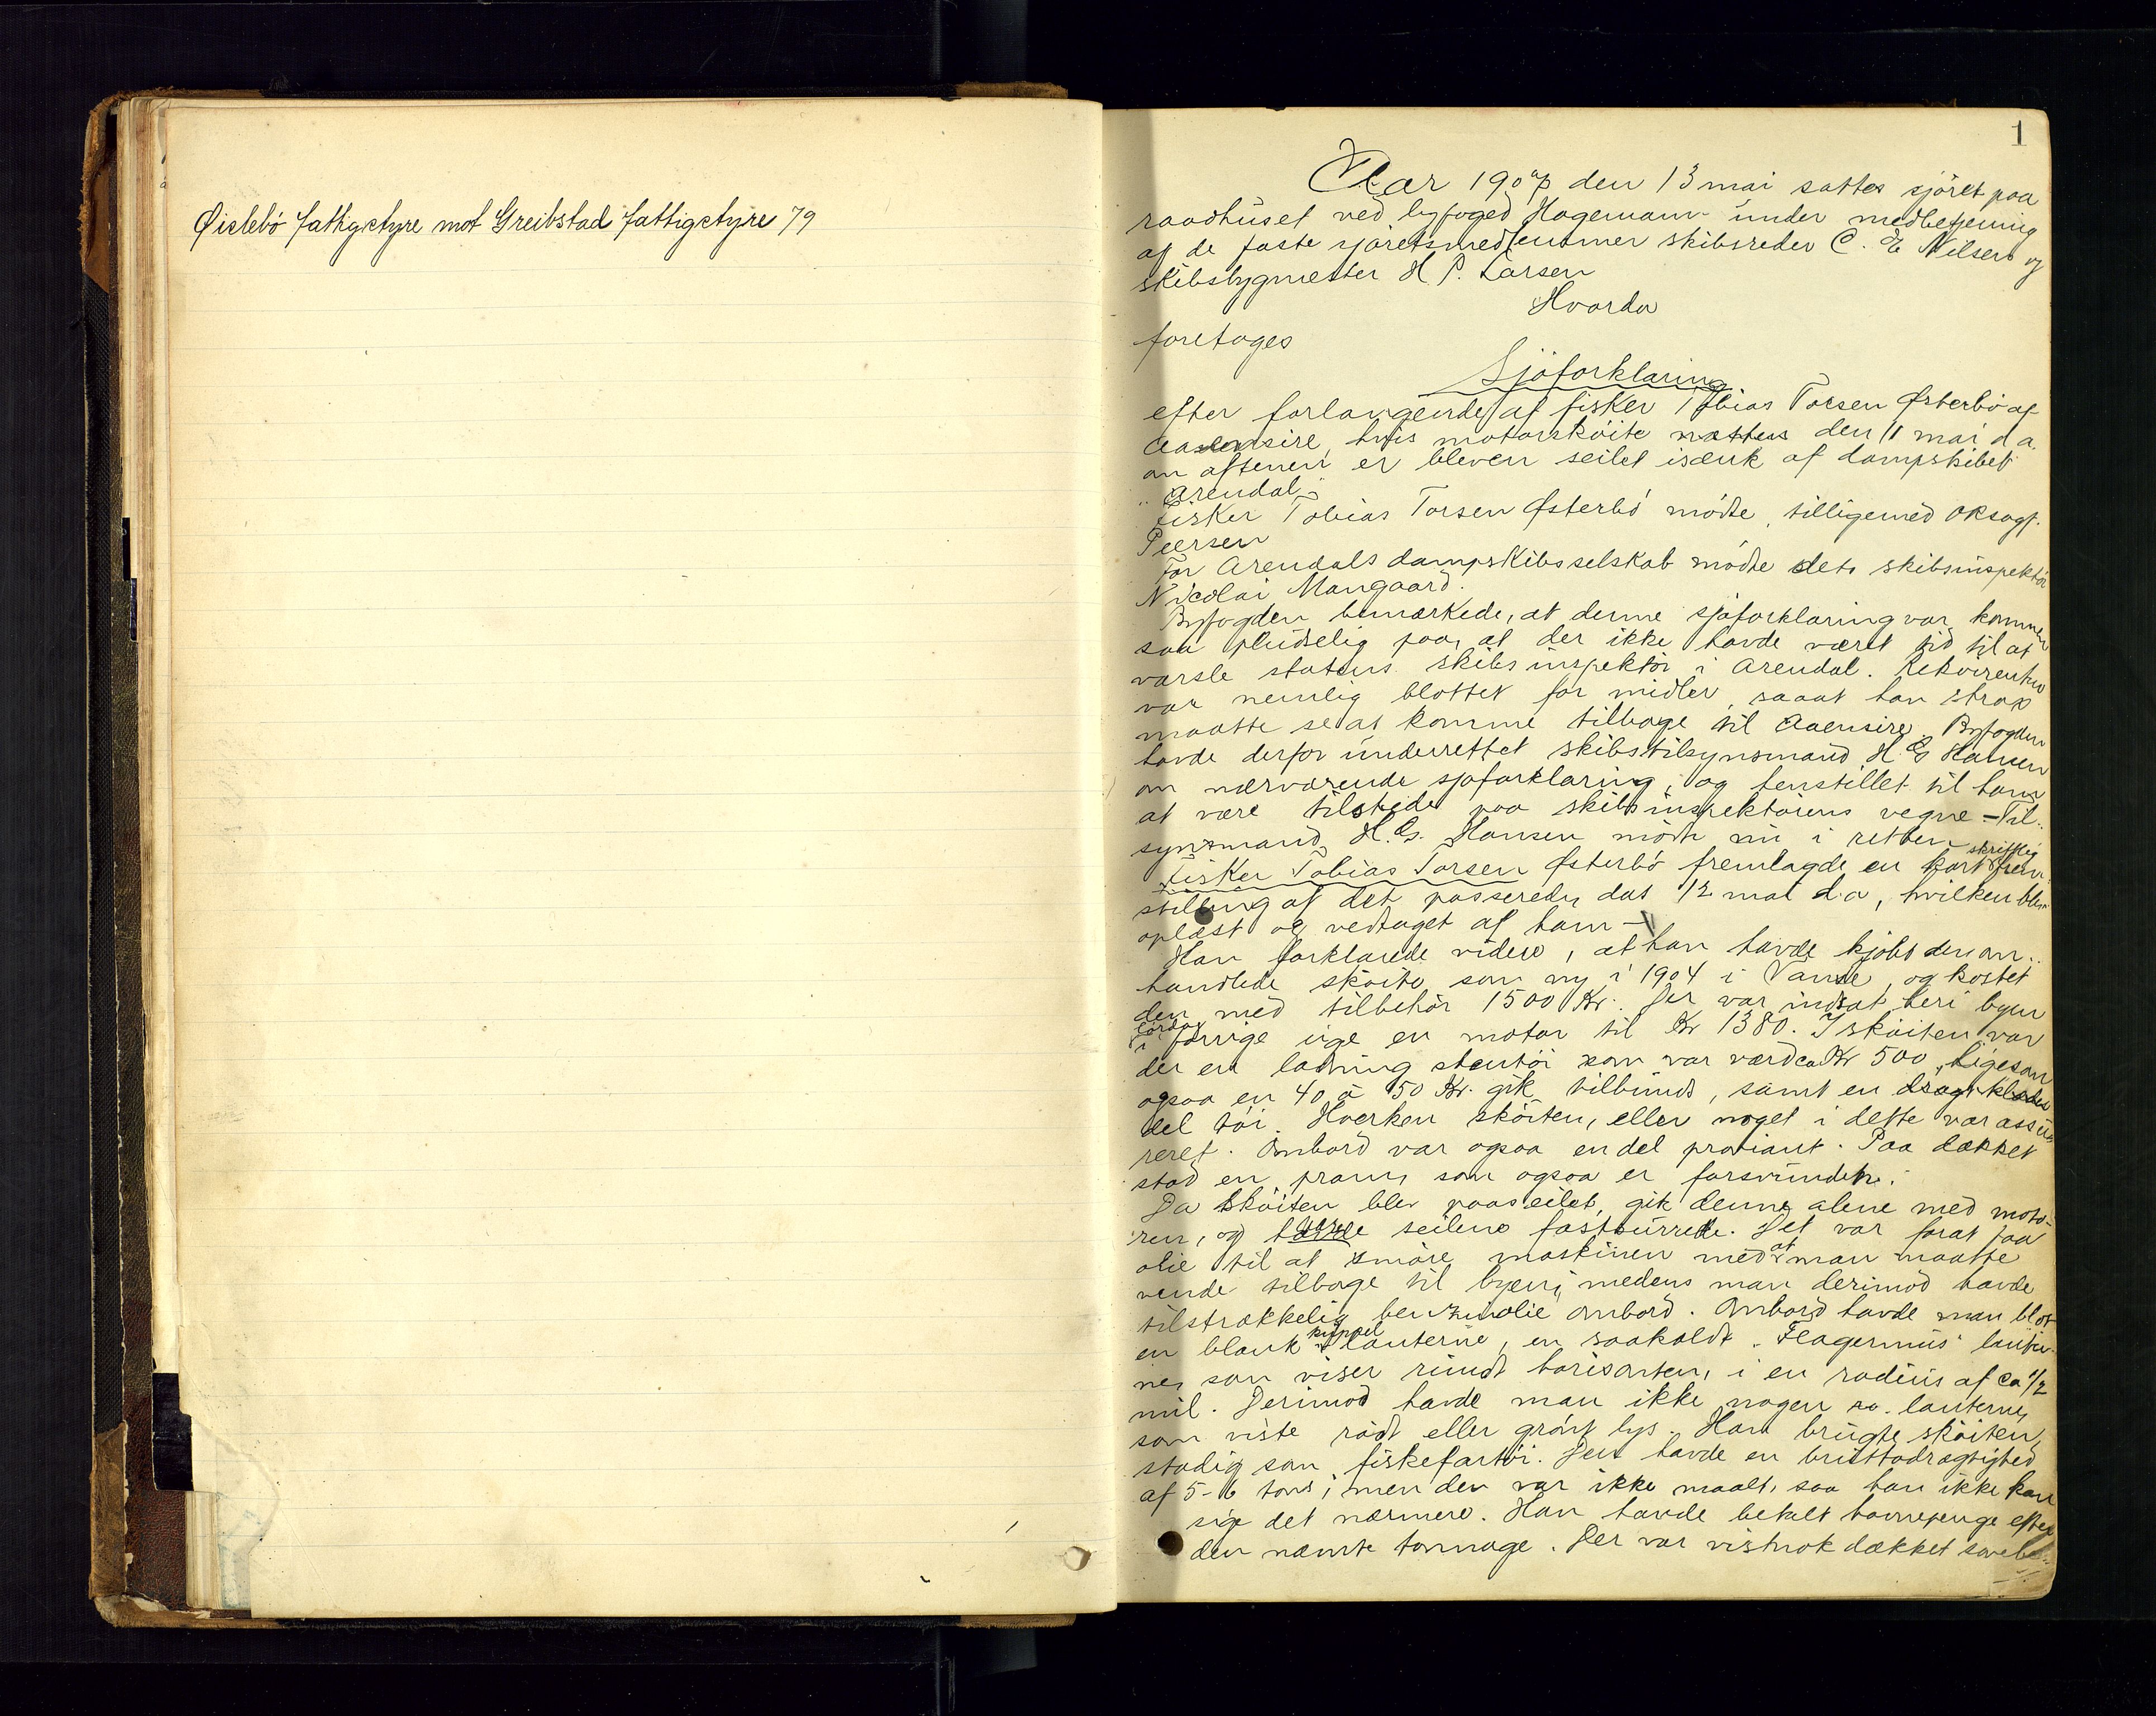 Øislebö fattigstyre mot Greibstad fattigstyre 79
1
Aar 1907 den 13 mai sattes sjöret paa
raadhuset ved byfoged Hagemann under medbetjening
af de faste sjöretsmedlemmer skibsreder C. E Nilsen og
skibsbygmester H P. Larsen
Hvorda
foretoges
Sjöforklaring
efter forlangende af fisker Tobias Torsen Østerbö af
Aaensire, hvis motorsköite den 11 mai d a.
om aftenen er bleven seilet isænk af dampskibet
"Arendal".
Fisker Tobias Torsen Østerbö mödte, tilligemed oksagf.
Peersen
For Arendals dampskibsselskab mödte dets skibsinspektör
Nicolai Mangaard.
Byfogden bemærkede, at denne sjöforklaring var kommen
saa pludselig paa, at der ikke havde været tid til at
varsle statens skibsinspektör i Arendal. Rekvirenten
var nemlig blottet for midler, saaat han strax
maatte se at komme tilbage til Aaensire. Byfogden
havde derfor underrettet skibstilsynsmand H. G Hansen
om nærværende sjöforklaring, og henstillet til ham
at være tilstede paa skibsinspektörens vegne – Til-
synsmand H. G. Hansen mödte nu i retten. –
Fisker Tobias Torsen Østerbö fremlagde en kort skriftlig frem-
stilling af det passerede, dat 12 mai d.a, hvilken blev
oplæst og vedtaget af ham –
Han forklarede videre, at han havde kjöbt den om-
handlede sköite som ny i 1904 i Vanse, og kostet
den med tilbehör 1500 Kr. Der var indsat her i byen
lördag i forrige uge en motor til Kr 1380. I sköiten var
der en ladning stentöi som var værd ca Kr 500, ligesom
ogsaa en 40 à 50 Kr. gik tilbunds, samt en
del töi. Hverken sköiten, eller noget i dette var assu-
reret. Ombord var ogsaa endel proviant. Paa dækket
stod en pram, som ogsaa er forsvunden.
Da sköiten blev paaseilet, gik denne alene med moto-
ren, og havde seilene fastsurrede. Det var forat faa
olie til at smöre maskinen med at man maatte
vende tilbage til byen, medens man derimod havde
tilstrækkelig benzinolie ombord. Ombord havde man blot
en blank kuppel lanterne, en saakaldt "Flagermus" lanter-
ne, som viser rundt horisonten, i en radius af ca 1/2
mil. Derimod havde man ikke nogen sa. lanterne,
som viste rödt eller grönt lys. Han brugte sköiten
stadig som fiskefartöi. Den havde en bruttodrægtighed
af 5-6 tons, men den var ikke maalt, saa han ikke kan
sige det nærmere. Han havde betalt havnepenge efter
den nævnte tonnage. Der var vistnok dækket